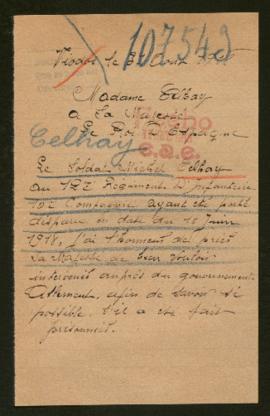 107549
Madame Elhay
a Sa Majesté
Le Roi d'Espagne
Celhay
Le Soldat Michel Elhay
au 122 Regiment D'infanterie
10e Compagnie ayant été porté
disparu en date du 12 Juin
1918, J'ai l'honneur de prier
Sa Majesté de bien vouloir
intervenir auprès du gouvernement
Allemand, afin de savoir si
possible s'il a été fait
prisonnier.